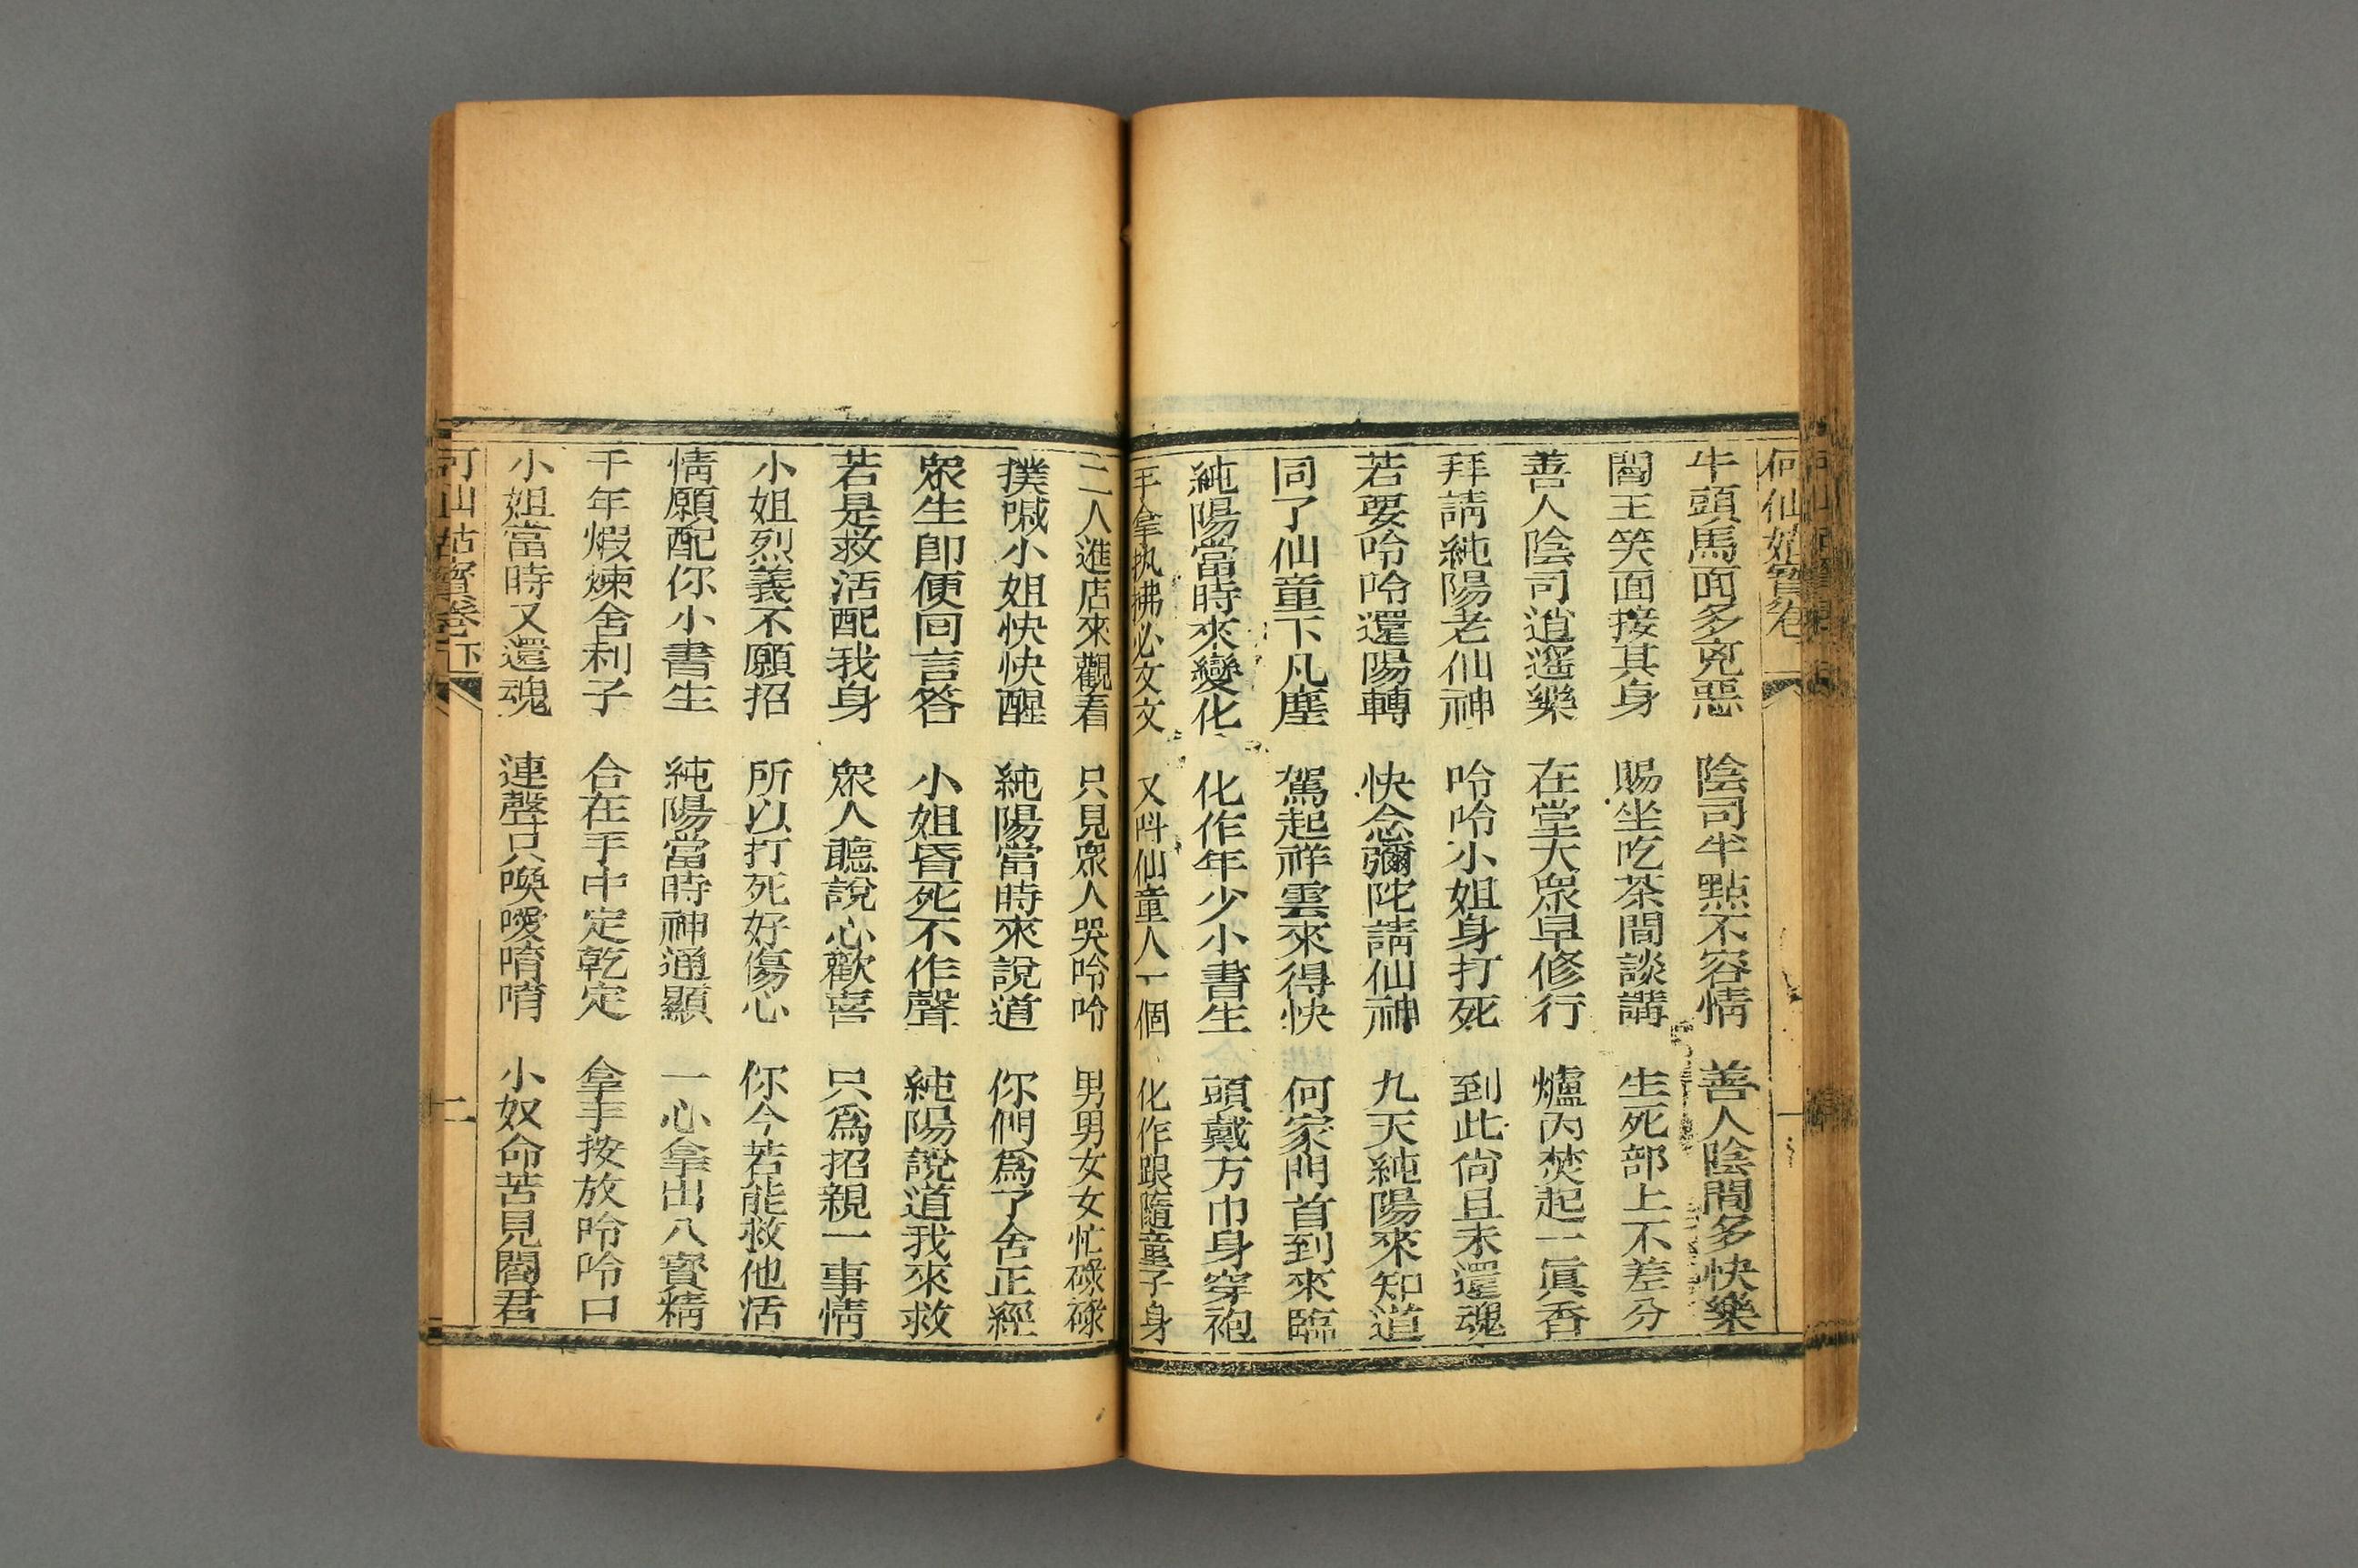 何仙姑寳卷
牛頭馬面多兇惡 陰司半點不容情 善人陰間多快樂
閻王笑面接其身 賜坐吃茶閒談講 生死部上不差分
善人陰司逍遙樂 在堂大眾早修行 爐內焚起一眞香
拜請純陽老仙神 呤呤小姐身打死 到此尙且未還魂
若要呤呤還陽轉 快念彌陀請仙神 九天純陽來知道
同了仙童下凡塵 駕起祥雲來得快 何家門首到來臨
純陽當時來變化 化作年少小書生 頭戴方巾身穿袍
手拿执拂必文文 又呌仙童人一個 化作跟隨童子身
二人進店來觀看 只見眾人哭呤呤 男男女女忙碌碌
撲喊小姐快快醒 純陽當時來說道 你們爲了舍正經
眾生卽便回言答 小姐昏死不作聲 純陽說道我來救
若是救活配我身 眾人聽說心歡喜 只爲招親一事情
小姐烈義不願招 所以打死好傷心 你今若能救他活
情願配你小書生 純陽當時神通顯 一心拿出八寳精
千年煆煉舍利子 合在手中定乾定 拿手按放呤呤口
小姐當時又還魂 連聲只喚噯唷唷 小奴命苦見閻君
何仙姑寳卷下 二